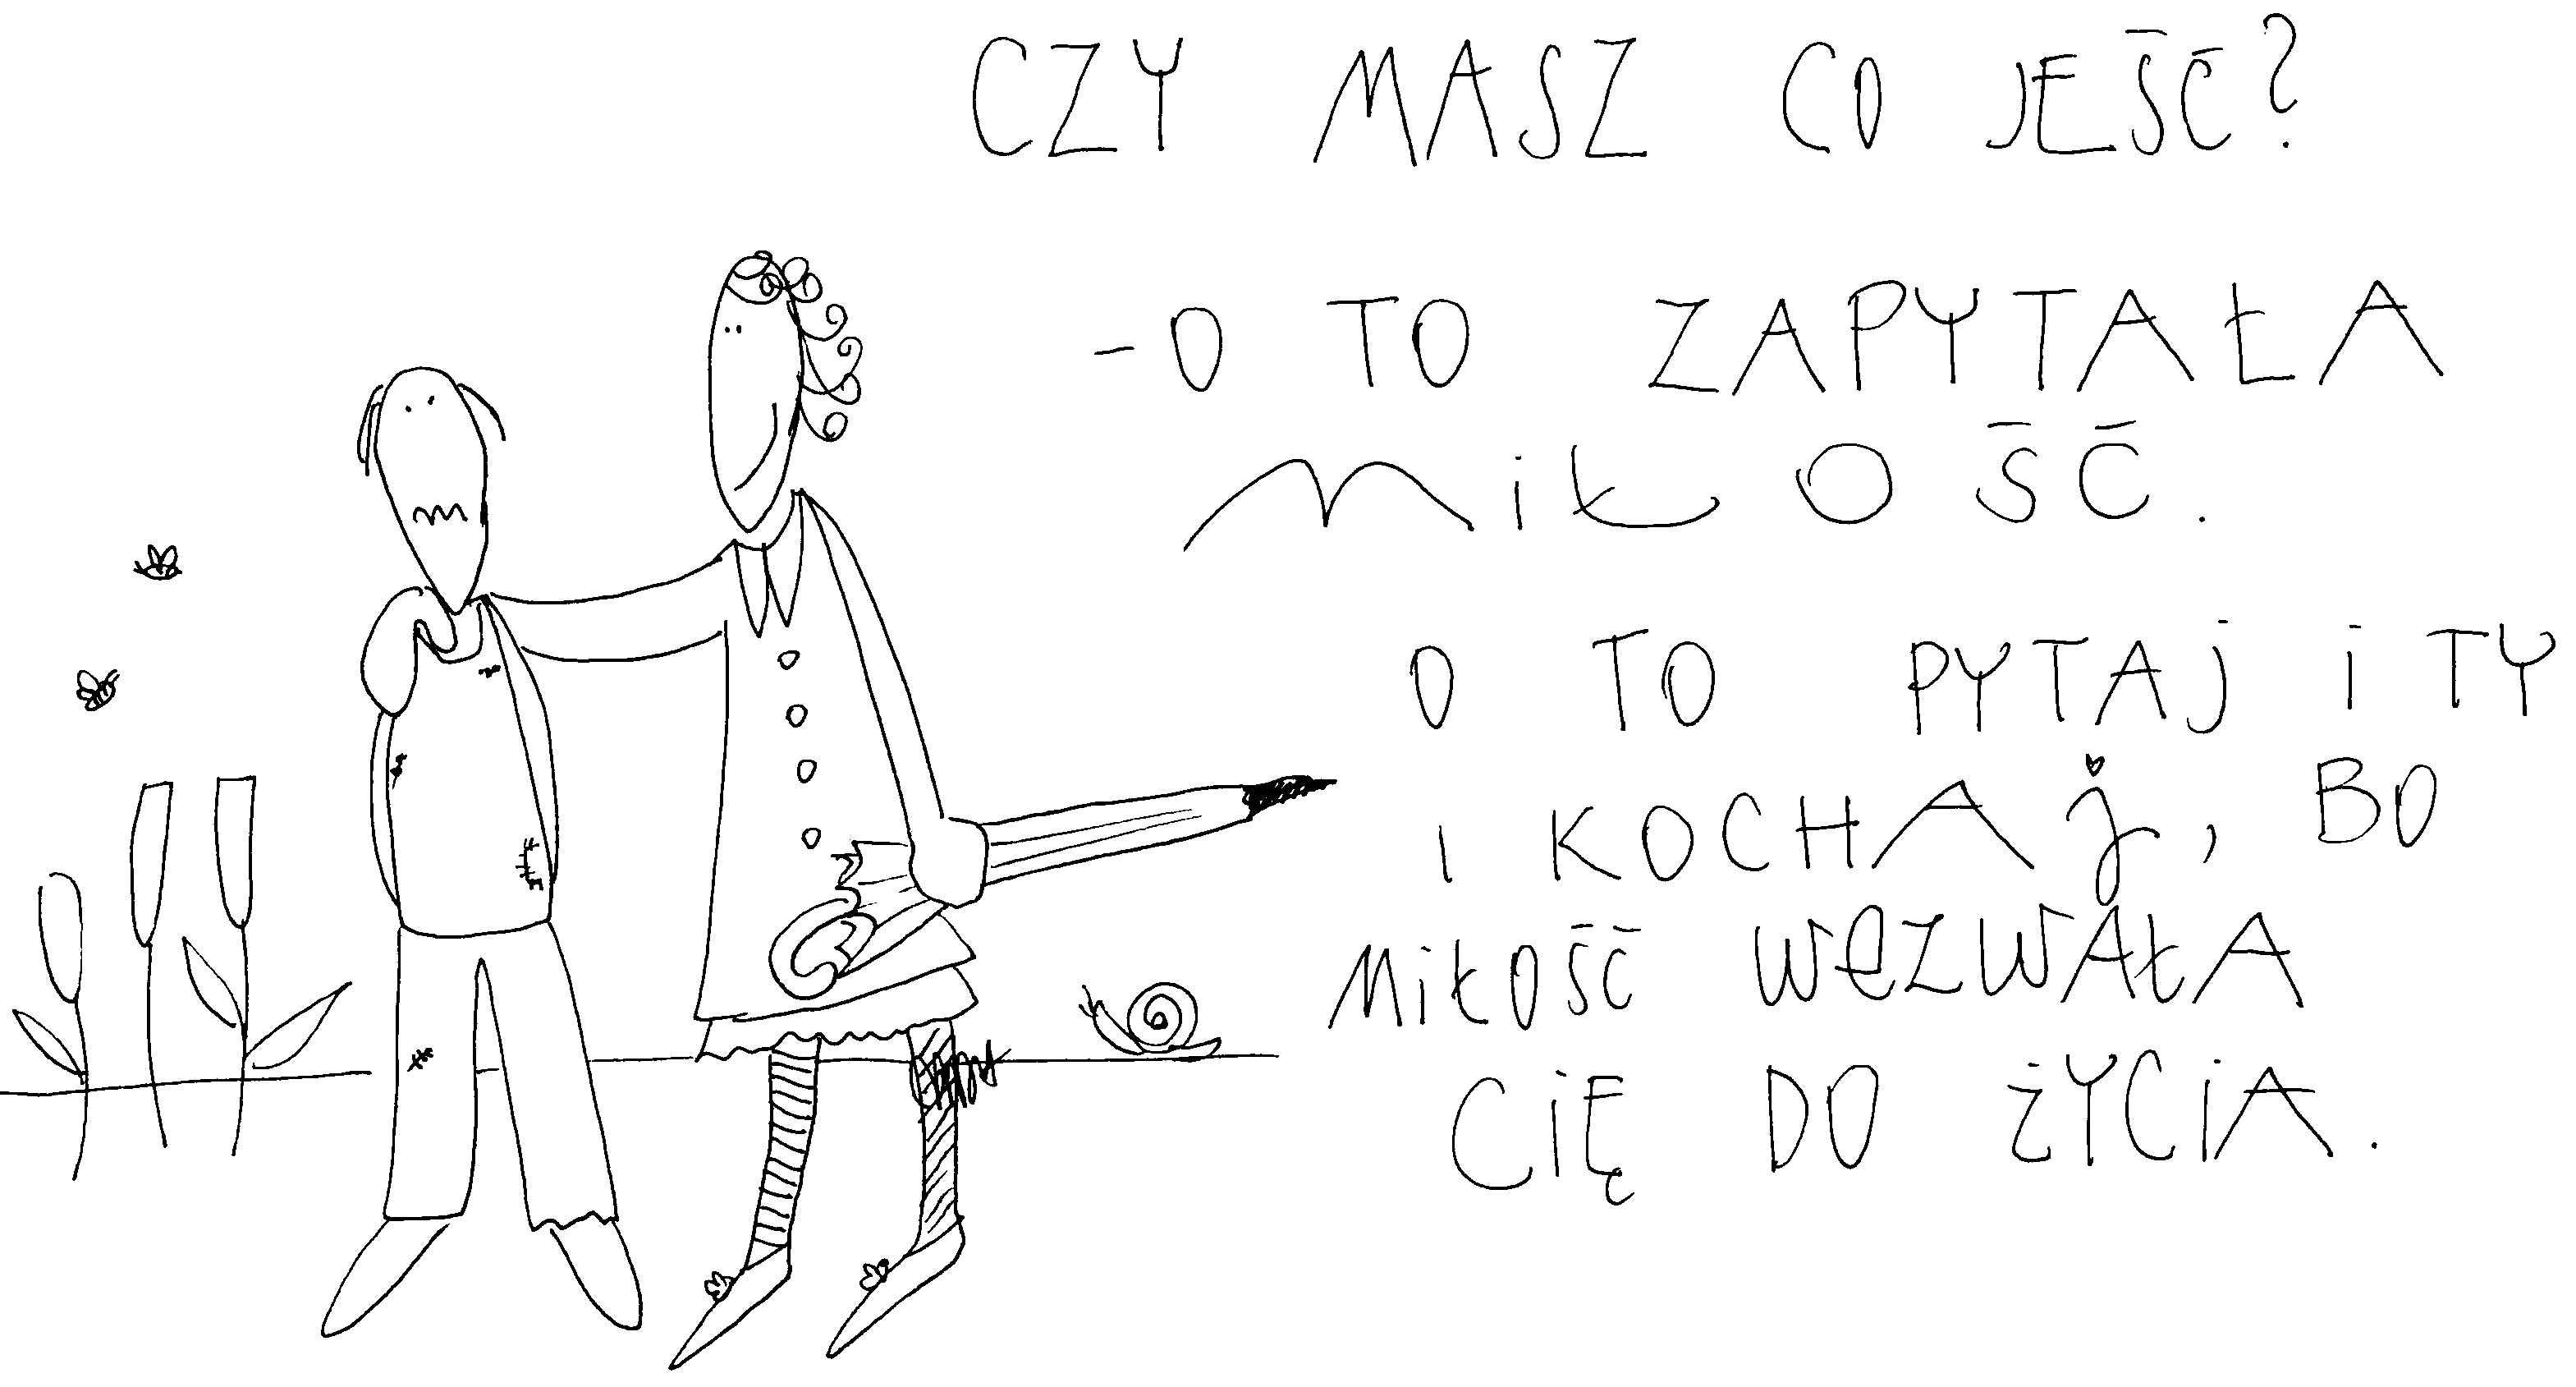 CZY MASZ CO JEŚĆ?
- O TO ZAPYTAŁA
MiŁOŚĆ.
O TO PYTAJ i TY
i KOCHAj, BO
MiŁOŚĆ WeZWAŁA
CiĘ DO ŻYCiA.